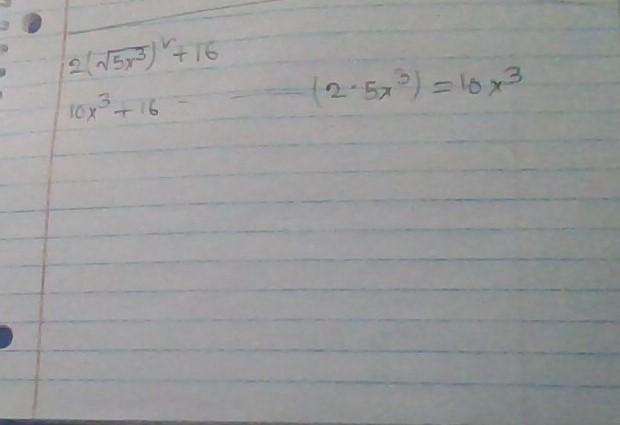 2(√5x³)² + 16
10x³ + 16 - —— (2·5x³) = 10x³